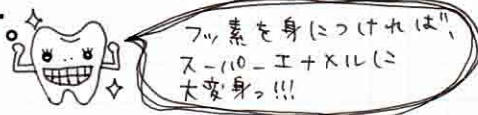 フッ素を身につければ、
スーパーエナメルに
大変身っ!!!